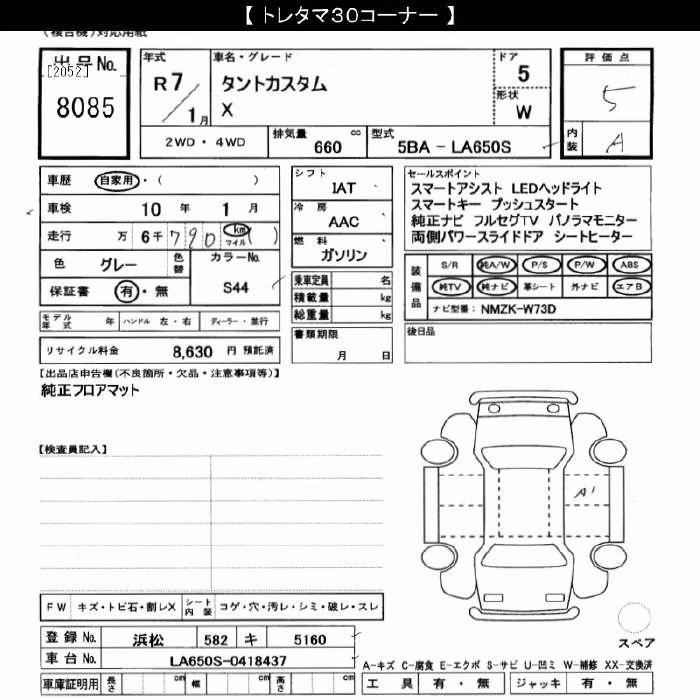 【 トレタマ30コーナー 】
(複合機)対応用紙
出品No.
[2052]
8085
年式
R7/1月
車名・グレード
タントカスタム
X
ドア
5
形状
W
2WD・4WD
排気量 660 cc
型式 5BA - LA650S
評価点
5
内装 A
車歴 自家用・( )
車検 10年 1月
走行 万 6千790 km マイル ( )
色 グレー 色替
カラーNo.
S44
保証書 有・無
シフト
IAT
冷房
AAC
燃料
ガソリン
乗車定員 名
積載量 kg
総重量 kg
セールスポイント
スマートアシスト LEDヘッドライト
スマートキー プッシュスタート
純正ナビ フルセグTV パノラマモニター
両側パワースライドドア シートヒーター
装備品
S/R 純A/W P/S P/W ABS
純TV 純ナビ 革シート 外ナビ エアB
ナビ型番: NMZK-W73D
モデル年式 年 ハンドル 左・右 ディーラー・並行
書類期限
月 日
後日品
リサイクル料金 8,630 円 預託済
【出品店申告欄(不良箇所・欠品・注意事項等)】
純正フロアマット
【検査員記入】
A1
FW キズ・トビ石・割レX
シート内装 コゲ・穴・汚レ・シミ・破レ・スレ
スペア
登録No. 浜松 582 キ 5160
車台No. LA650S-0418437
A-キズ C-腐食 E-エクボ S-サビ U-凹ミ W-補修 XX-交換済
車庫証明用 長さ cm 幅 cm 高さ cm
工具 有・無 ジャッキ 有・無